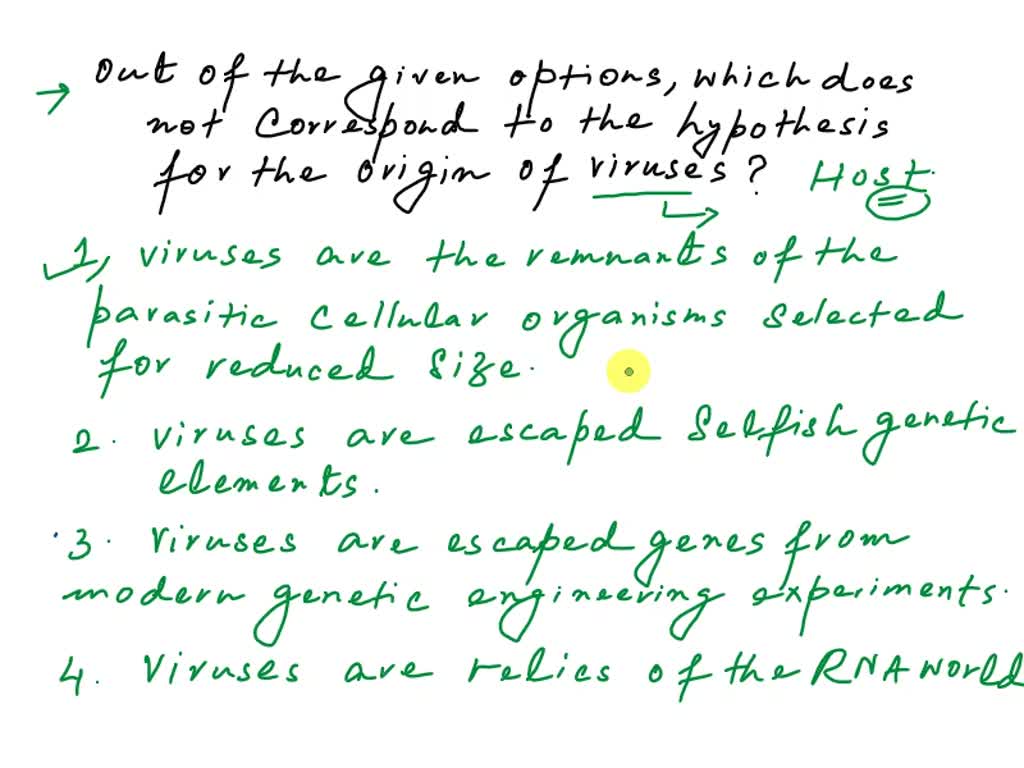 → Out of the given options, which does
not Correspond to the hypothesis
for the origin of viruses? Host.
✓1, viruses are the remnants of the
parasitic cellular organisms selected
for reduced size.
2. viruses are escaped selfish genetic
elements.
3. viruses are escaped genes from
modern genetic engineering experiments.
4. Viruses are relics of the RNA world